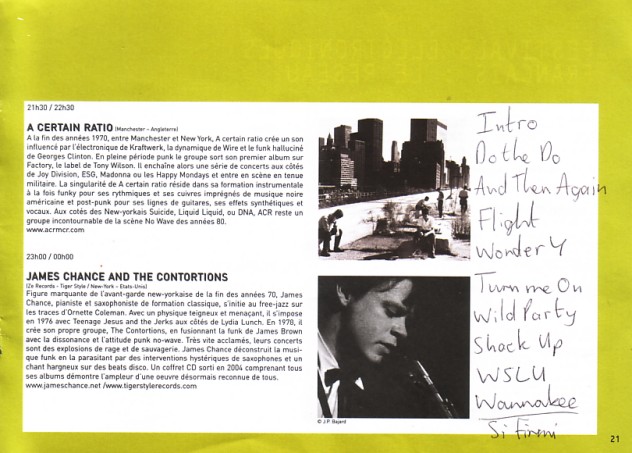 21h30 / 22h30
A CERTAIN RATIO (Manchester – Angleterre)
A la fin des années 1970, entre Manchester et New York, A certain ratio crée un son
influencé par l'électronique de Kraftwerk, la dynamique de Wire et le funk halluciné
de Georges Clinton. En pleine période punk le groupe sort son premier album sur
Factory, le label de Tony Wilson. Il enchaîne alors une série de concerts aux côtés
de Joy Division, ESG, Madonna ou les Happy Mondays et entre en scène en tenue
militaire. La singularité de A certain ratio réside dans sa formation instrumentale
à la fois funky pour ses rythmiques et ses cuivres imprégnés de musique noire
américaine et post-punk pour ses lignes de guitares, ses effets synthétiques et
vocaux. Aux cotés des New-yorkais Suicide, Liquid Liquid, ou DNA, ACR reste un
groupe incontournable de la scène No Wave des années 80.
www.acrmcr.com
23h00 / 00h00
JAMES CHANCE AND THE CONTORTIONS
(Ze Records - Tiger Style / New-York – Etats-Unis)
Figure marquante de l'avant-garde new-yorkaise de la fin des années 70, James
Chance, pianiste et saxophoniste de formation classique, s'initie au free-jazz sur
les traces d'Ornette Coleman. Avec un physique teigneux et menaçant, il s'impose
en 1976 avec Teenage Jesus and the Jerks aux côtés de Lydia Lunch. En 1978, il
crée son propre groupe, The Contortions, en fusionnant la funk de James Brown
avec la dissonance et l'attitude punk no-wave. Très vite acclamés, leurs concerts
sont des explosions de rage et de sauvagerie. James Chance déconstruit la musi-
que funk en la parasitant par des interventions hystériques de saxophones et un
chant hargneux sur des beats disco. Un coffret CD sorti en 2004 comprenant tous
ses albums démontre l'ampleur d'une oeuvre désormais reconnue de tous.
www.jameschance.net /www.tigerstylerecords.com
© J.P. Bajard
Intro
Do the Do
And Then Again
Flight
Wonder Y
Turn me On
Wild Party
Shack Up
WSLU
Wannabee
Si Firmi
21